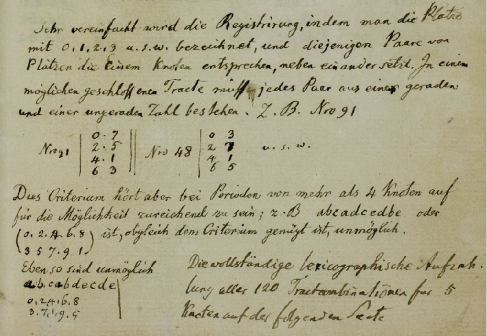 Sehr vereinfacht wird die Registrirung, indem man die Plätze
mit 0, 1, 2, 3 u. s. w. bezeichnet, und diejenigen Paare von
Plätzen die einem Knoten entsprechen, neben einander setzt. In einem
möglichen geschlossenen Tracte muss jedes Paar aus einer geraden
und einer ungeraden Zahl bestehen. Z. B. Nro 91
Nro 91 | 0. 7 || Nro 48 | 0 3 u. s. w.
2. 5 2 7
4. 1 4 1
6 3 6 5
Dies Criterium hört aber bei Perioden von mehr als 4 Knoten auf
für die Möglichkeit zureichend zu sein; z. B abcadcedbe oder
(0. 2. 4. 6. 8
3 5 7. 9. 1) ist, obgleich dem Criterium genügt ist, unmöglich.
Eben so sind unmöglich
abcabdecde
0. 2. 4. 6. 8
3. 7. 1. 9. 5
Die vollständige lexicographische Aufzäh-
lung aller 120 Tractcombinationen für 5
Knoten auf der folgenden Seite